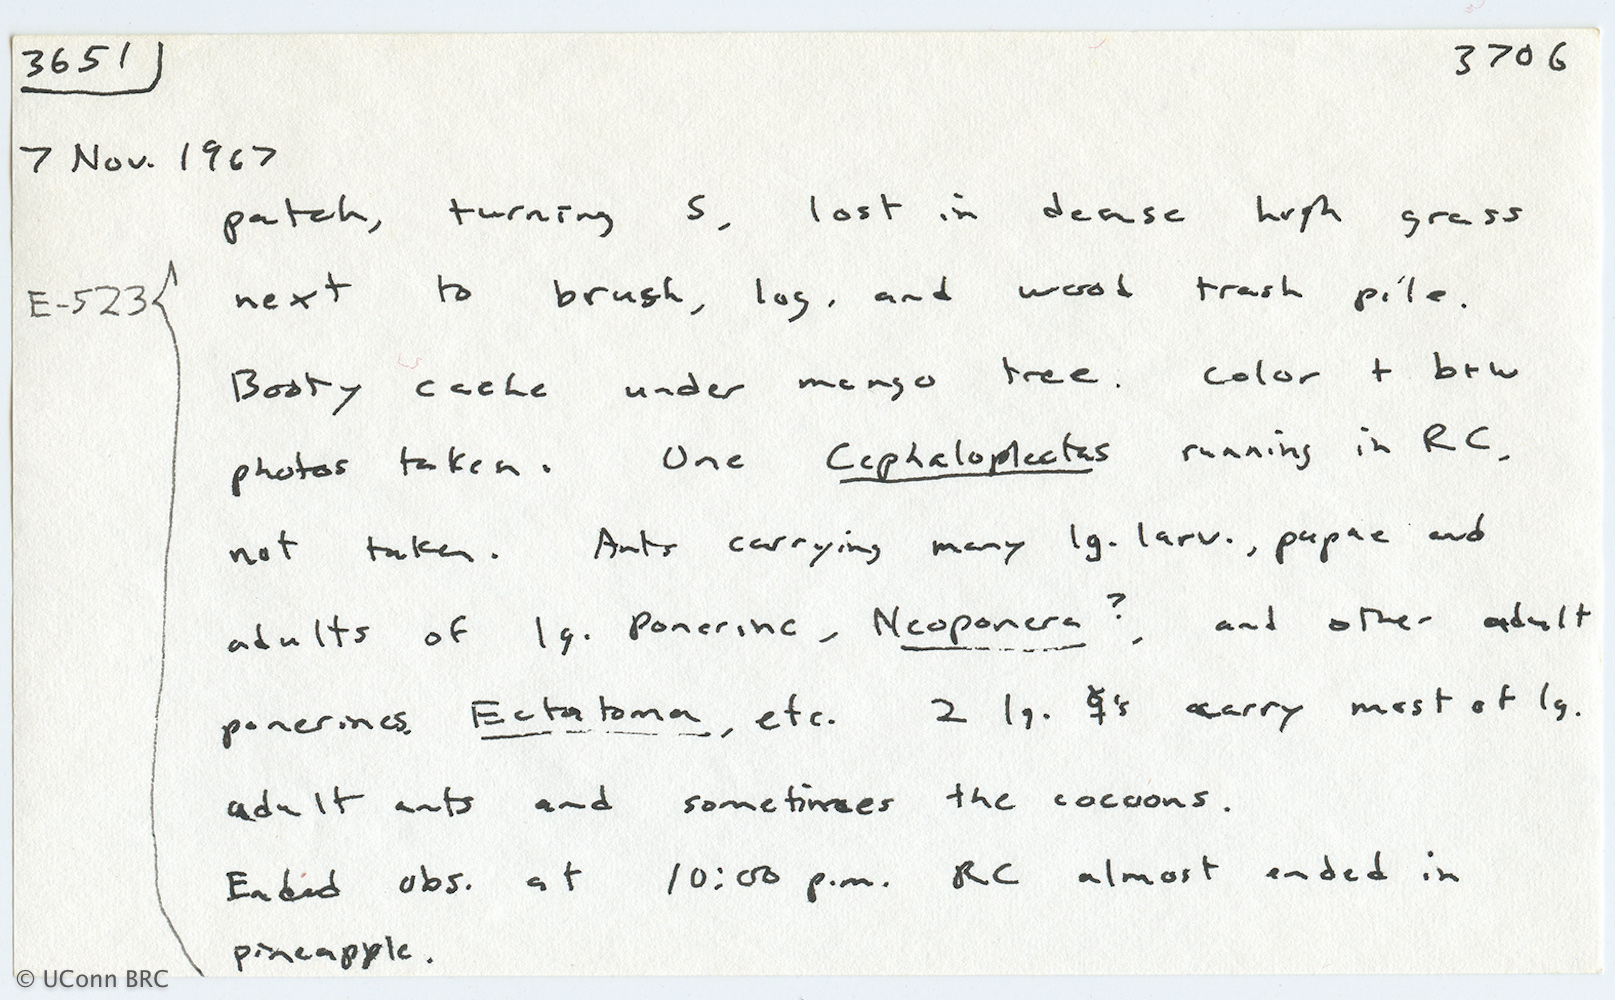 3651 3706
7 Nov. 1967
patch, turning S, lost in dense high grass
E-523 next to brush, log, and wood trash pile.
Booty cache under mango tree. Color + b+w
photos taken. One Cephaloplectus running in RC,
not taken. Ants carrying many lg. larv., pupae and
adults of lg. Ponerine, Neoponera?, and other adult
ponerines, Ectatoma, etc. 2 lg. ☿'s carry most of lg.
adult ants and sometimes the cocoons.
Ended obs. at 10:00 p.m. RC almost ended in
pineapple.
© UConn BRC